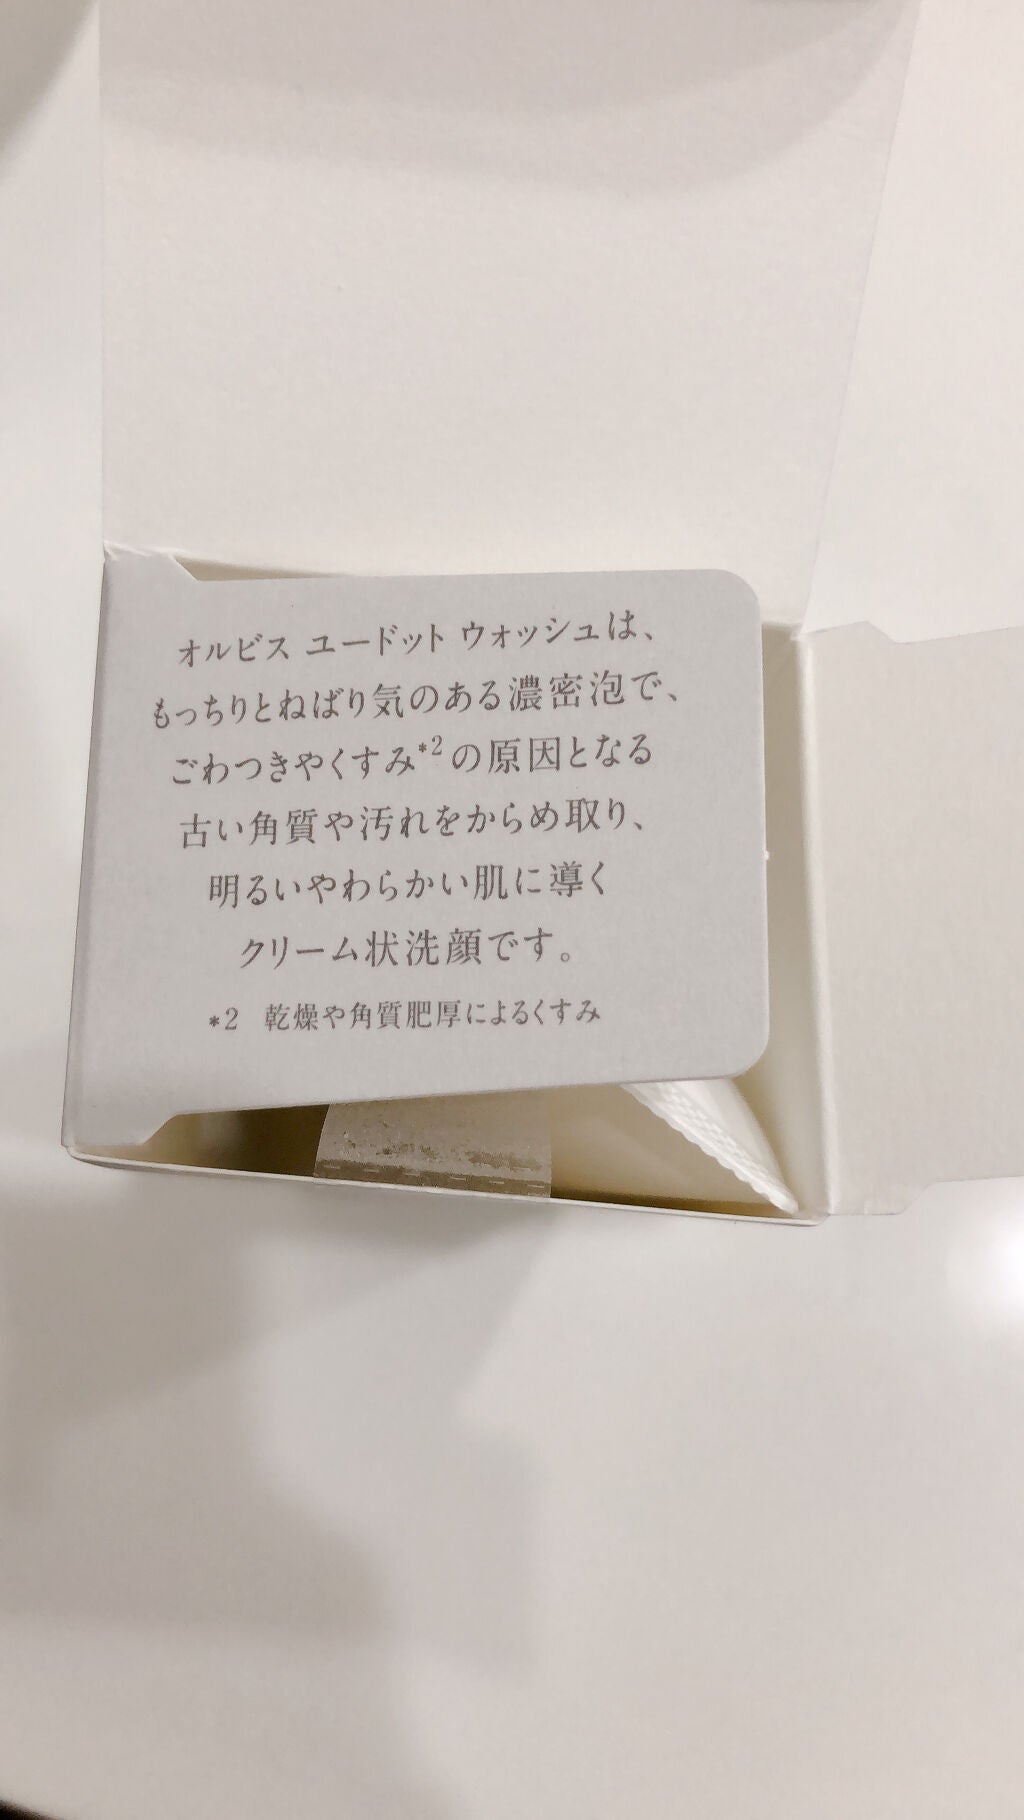 オルビス ユードット ウォッシュは、
もっちりとねばり気のある濃密泡で、
ごわつきやくすみ*2の原因となる
古い角質や汚れをからめ取り、
明るいやわらかい肌に導く
クリーム状洗顔です。
*2 乾燥や角質肥厚によるくすみ